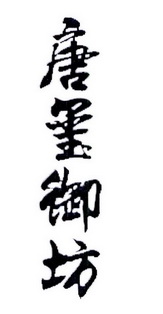 唐墨御坊